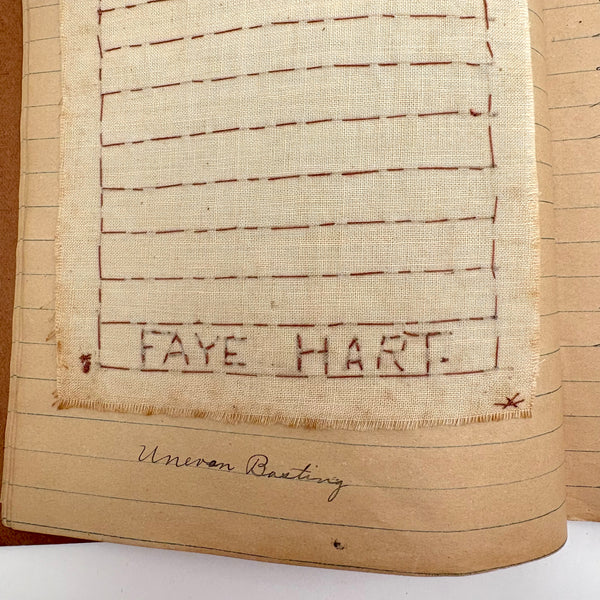 FAYE HART.
Uneven Basting